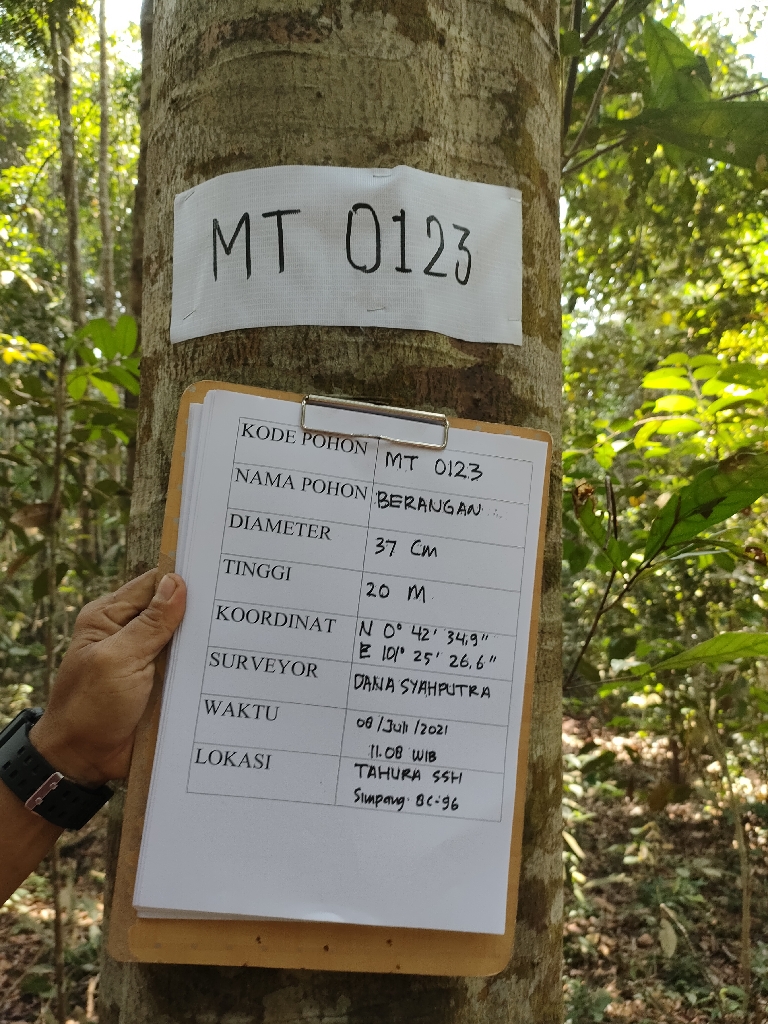 MT 0123
KODE POHON MT 0123
NAMA POHON BERANGAN
DIAMETER 37 Cm
TINGGI 20 M
KOORDINAT N 0° 42' 34,9"
E 101° 25' 26,6"
SURVEYOR DANA SYAHPUTRA
WAKTU 08/Juli/2021
11.08 WIB
LOKASI TAHURA SSH
Simpang BC-96